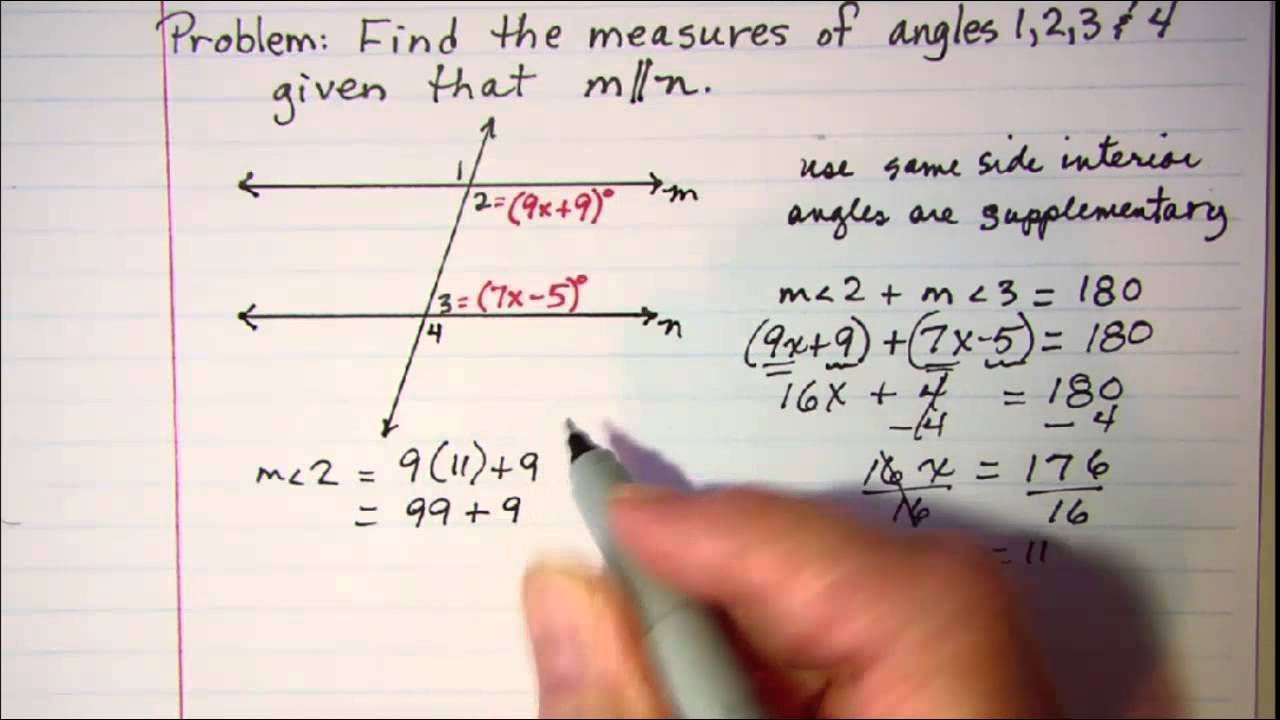 Problem: Find the measures of angles 1,2,3 & 4
given that m∥n.
1
m
2=(9x+9)°
3=(7x-5)°
n
4
use same side interior
angles are supplementary
m<2 + m<3 = 180
(9x+9)+(7x-5)= 180
16x + 4 = 180
-4 - 4
16x = 176
16 16
= 11
m<2 = 9(11)+9
= 99 + 9